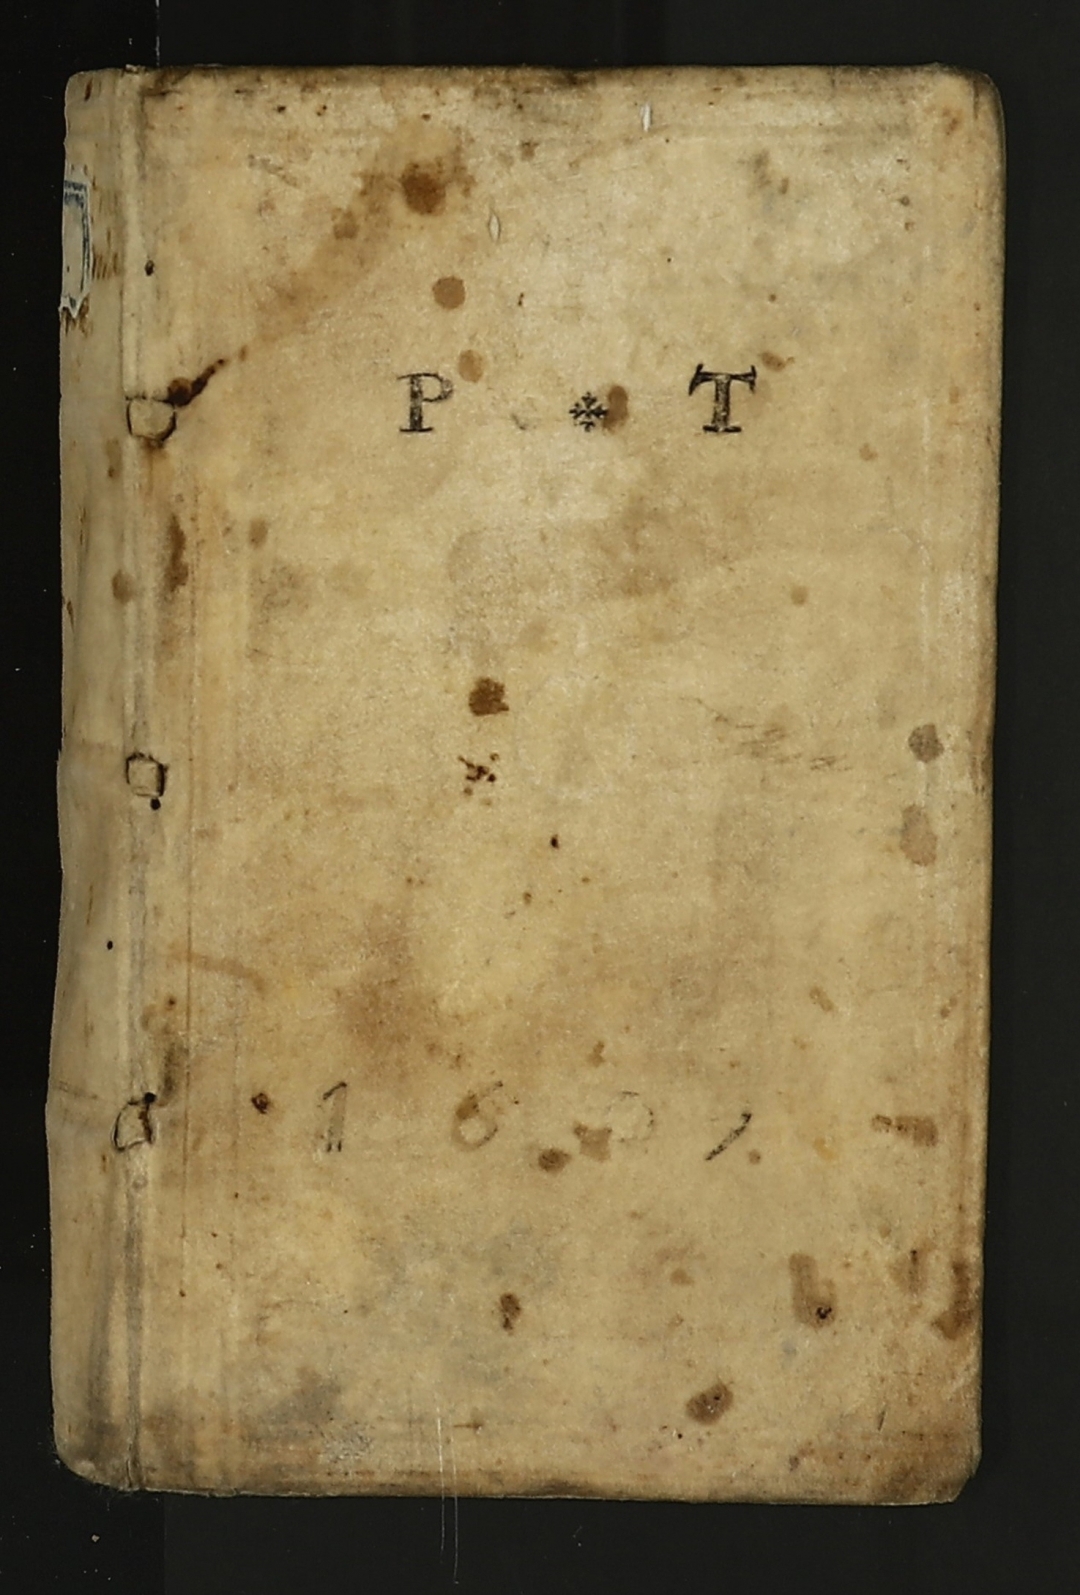 P * T
160